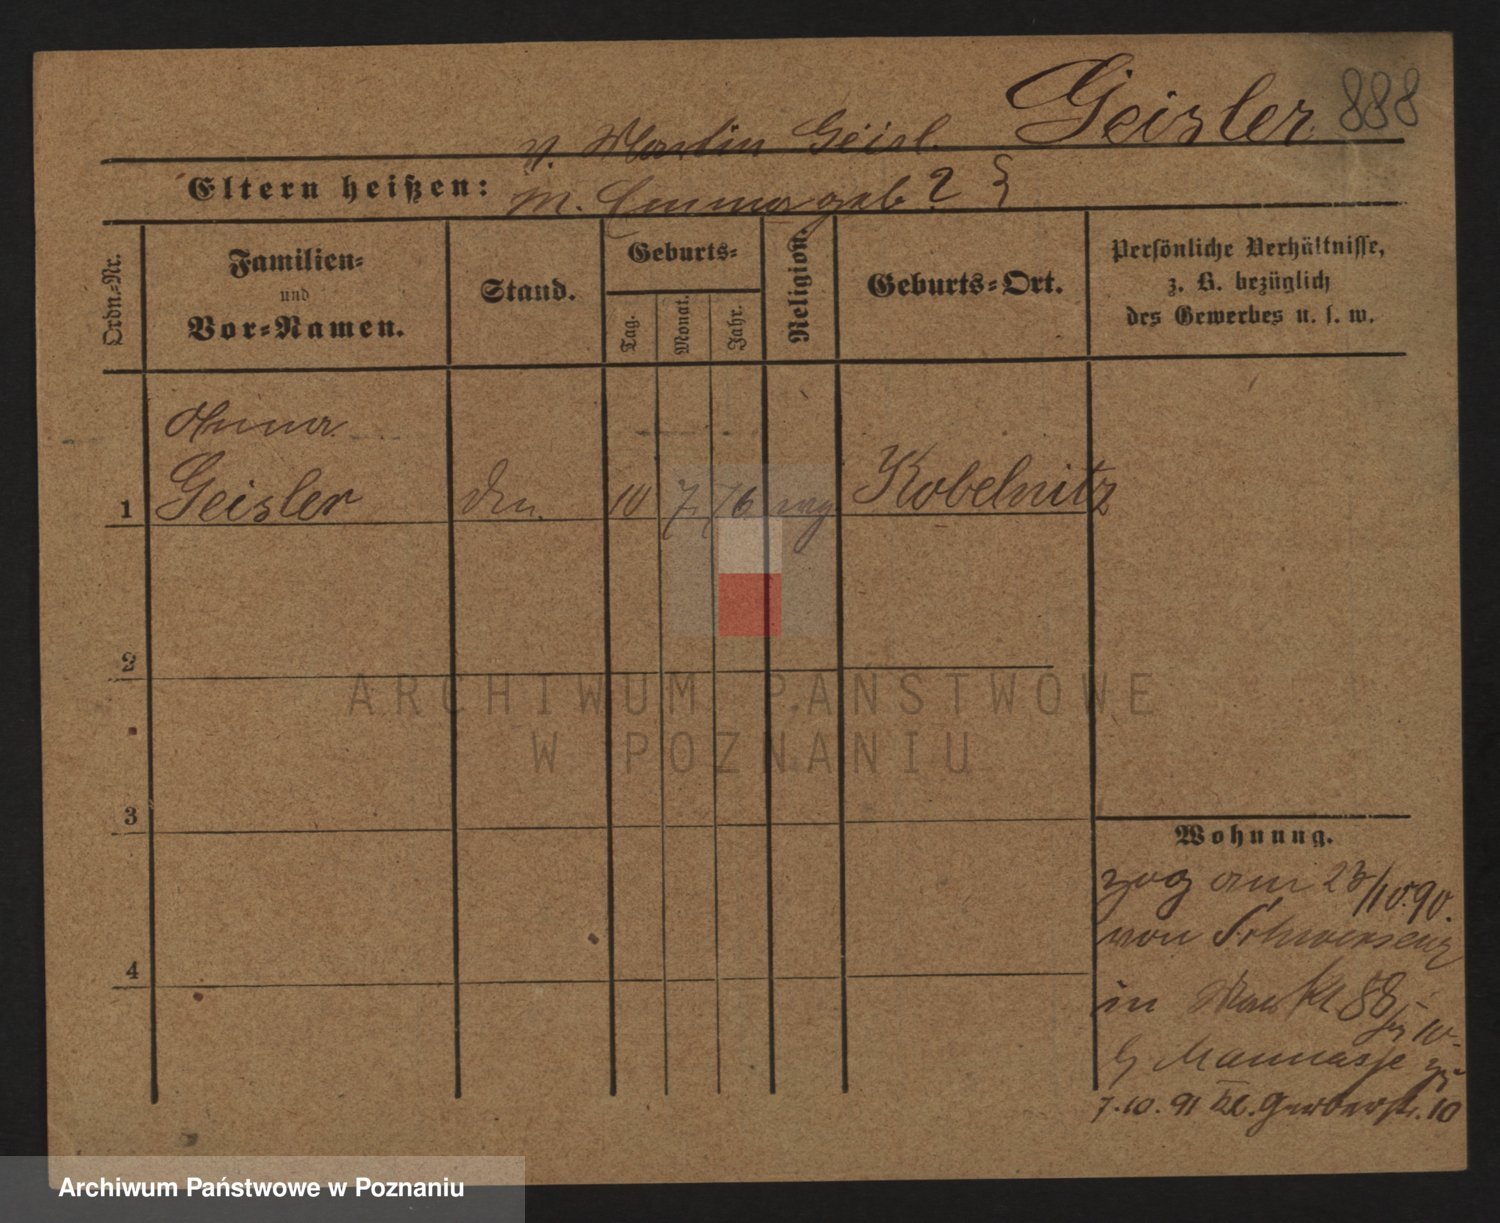 Geisler 888
V. Martin Geisl.
Eltern heißen:
M. Emma geb ?
Ordn.-Nr.
Familien-
und
Vor-Namen.
Stand.
Geburts-
Tag.
Monat.
Jahr.
Religion.
Geburts-Ort.
Persönliche Verhältnisse,
z. B. bezüglich
des Gewerbes u. s. w.
Anna
1 Geisler 10 7 76 Kobelnitz
2
3
4
ARCHIWUM PAŃSTWOWE
W POZNANIU
Wohnung.
zog am 23/10.90.
von Schwersenz
in Markt 88
Mannasse
7.10.91 Kl. Gerberstr. 10
Archiwum Państwowe w Poznaniu